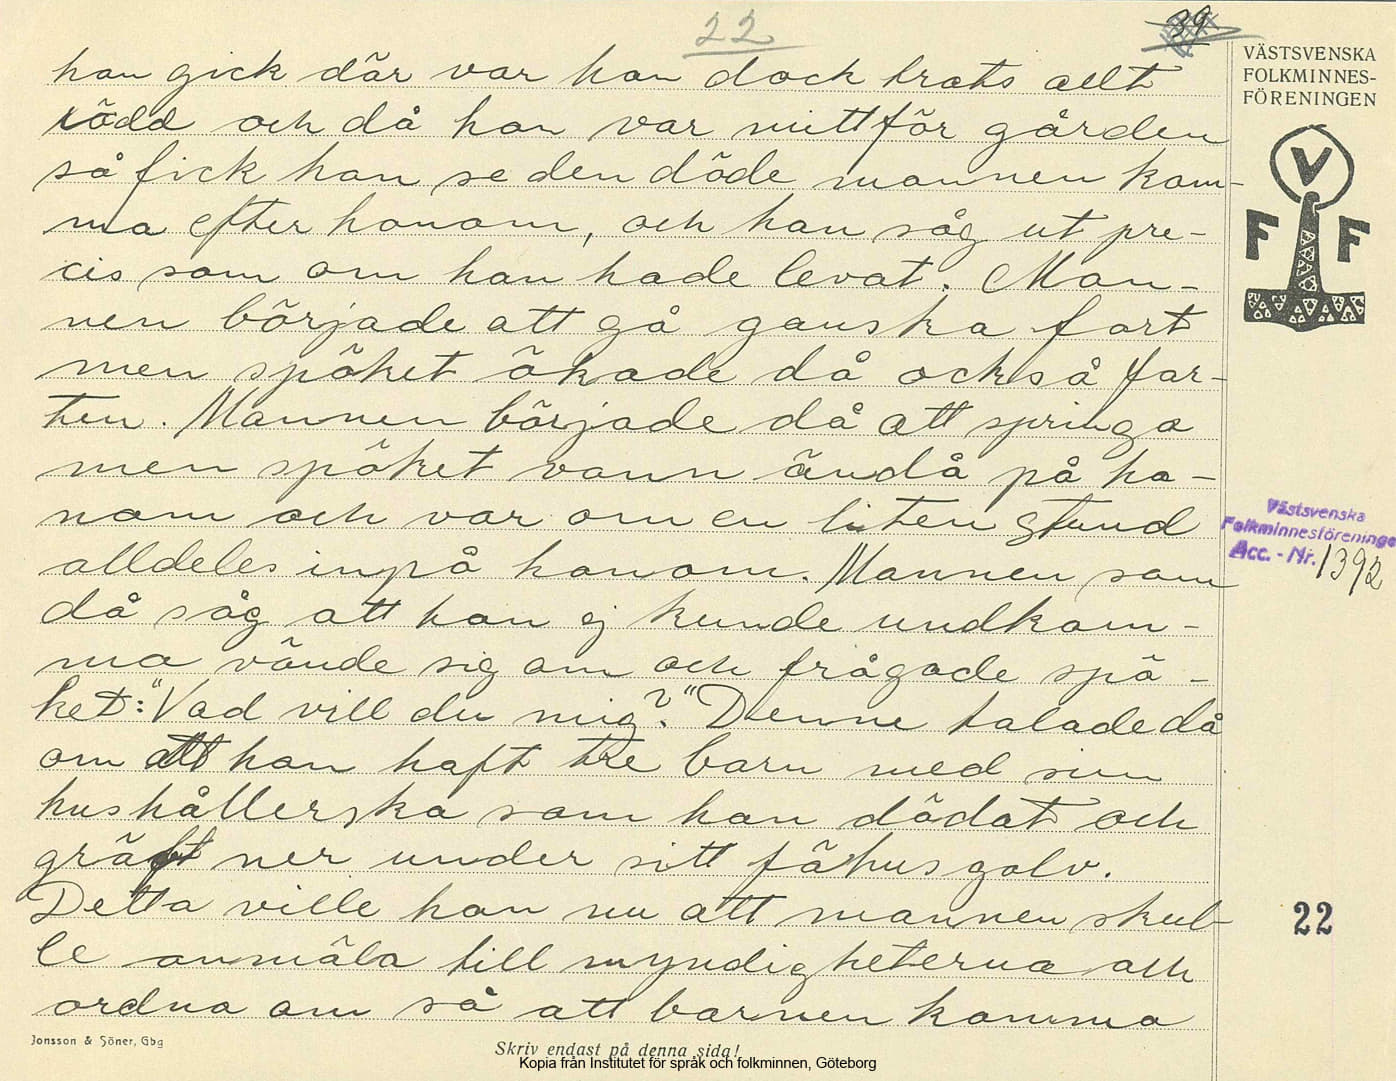 22
39
VÄSTSVENSKA
FOLKMINNES-
FÖRENINGEN
V
F F
han gick där var han dock trots allt
rädd och då han var mittför gården
så fick han se den döde mannen kom-
ma efter honom, och han såg ut pre-
cis som om han hade levat. Man-
nen började att gå ganska fort
men spöket ökade då också far-
ten. Mannen började då att springa
men spöket vann ändå på ho-
nom och var om en liten stund
alldeles inpå honom. Mannen som
då såg att han ej kunde undkom-
ma vände sig om och frågade spö-
ket: "Vad vill du mig?" Denne talade då
om att han haft tre barn med sin
hushållerska som han dödat och
gräft ner under sitt fähusgolv.
Detta ville han nu att mannen skul-
le anmäla till myndigheterna och
ordna om så att barnen komma
Västsvenska
Folkminnesföreningen
Acc. - Nr. 1392
22
Jonsson & Söner, Gbg
Skriv endast på denna sida!
Kopia från Institutet för språk och folkminnen, Göteborg